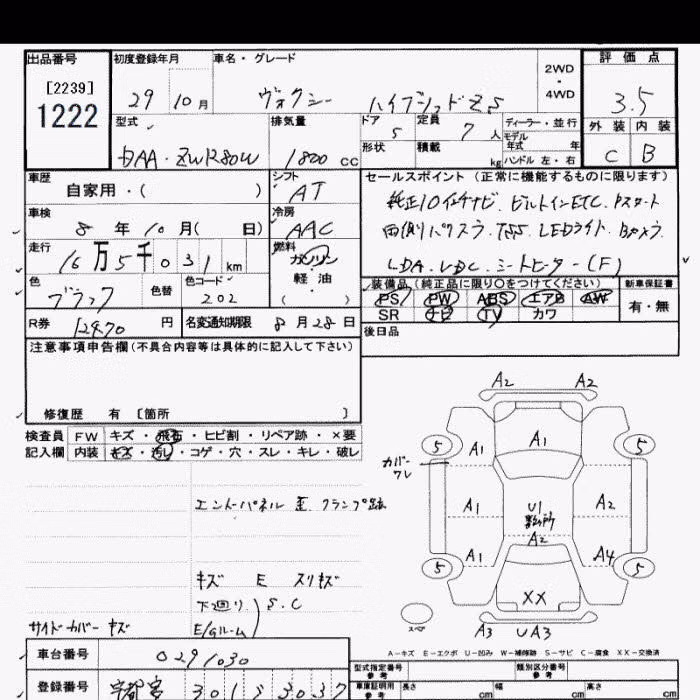 出品番号
[2239]
1222
初度登録年月
29 10 月
車名・グレード
ヴォクシー ハイブリッドZS
2WD
・
4WD
評価点
3.5
外装 内装
C B
型式
DAA・ZWR80W
排気量
1800 cc
ドア
5
定員
7 人
形状
積載
kg
ディーラー・並行
モデル
年式 年
ハンドル 左・右
車歴
自家用・( )
シフト
AT
車検
8 年 10 月( 日)
冷房
AAC
走行
16 万 5 千 0 3 1 km
燃料
ガソリン
軽油
( )
色
ブラック
色替
色コード
202
R券
12970 円
名変通知期限
8 月 28 日
セールスポイント (正常に機能するものに限ります)
純正10インチナビ. ビルトインETC. Pスタート
両側パワスラ. TSS. LEDライト. Bカメラ.
LDA. VDC. シートヒーター(F)
装備品 (純正品に限り○をつけてください)
新車保証書
PS PW ABS エアB AW
SR ナビ TV カワ
有・無
後日品
注意事項申告欄(不具合内容等は具体的に記入して下さい)
修復歴 有 [箇所 ]
検査員
記入欄
FW キズ・飛石・ヒビ割・リペア跡・×要
内装 キズ・汚レ・コゲ・穴・スレ・キレ・破レ
エンドパネル 歪 クランプ跡
キズ E スリキズ
下廻り
E/Gルーム
S.C
サイドカバー キズ
A2 A2
5 A1 A1 5
カバー
ワレ
A1 U1 A2
数ヶ所
A2
A1 A4
5 XX 5
スペア
A3 UA3
A-キズ E-エクボ U-凹み W-補修跡 S-サビ C-腐食 XX-交換済
車台番号
0291030
登録番号
宇都宮 301 3037
型式指定番号
参考
類別区分番号
参考
車車証明用
参考
長さ cm 幅 cm 高さ cm